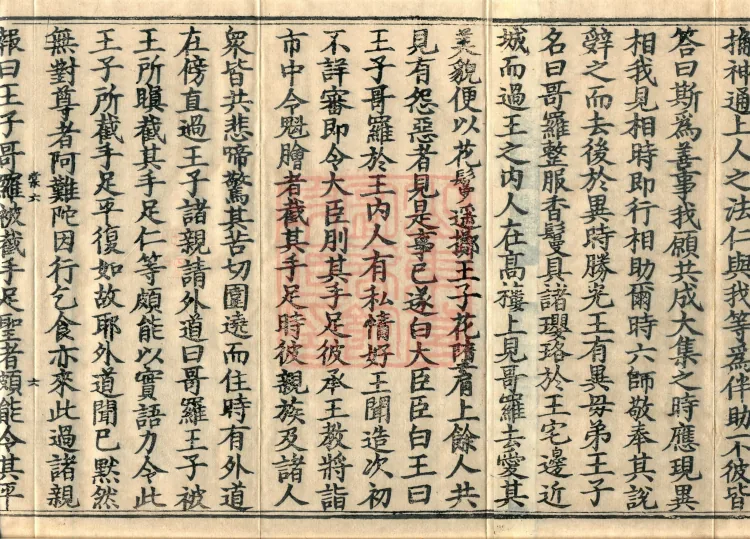 撫神通上人之法仁與我等為伴助不彼皆
荅曰斯為善事我願共成大集之時應現異
相我見相時即行相助爾時六師敬奉其說
辝之而去後於異時勝光王有異毋弟王子
名曰哥羅整服香鬘具諸瓔珞於王宅邊近
城而過王之内人在高樓上見哥羅去愛其
美貌便以花鬘遥擲王子花墮肩上餘人共
見有怨惡者見是事已遂白大臣臣白王曰
王子哥羅於王内人有私情好王聞造次初
不詳審即令大臣刖其手足彼承王教將詣
市中令魁膾者截其手足時彼親族及諸人
衆皆共悲啼驚其苦切圍遶而住時有外道
在傍直過王子諸親請外道曰哥羅王子被
王所瞋截其手足仁等頗能以實語力令此
王子所截手足平復如故耶外道聞已黙然
無對尊者阿難陁因行乞食亦來此過諸親
棠六 六
報曰王子哥羅被截手足聖者頗能令其平